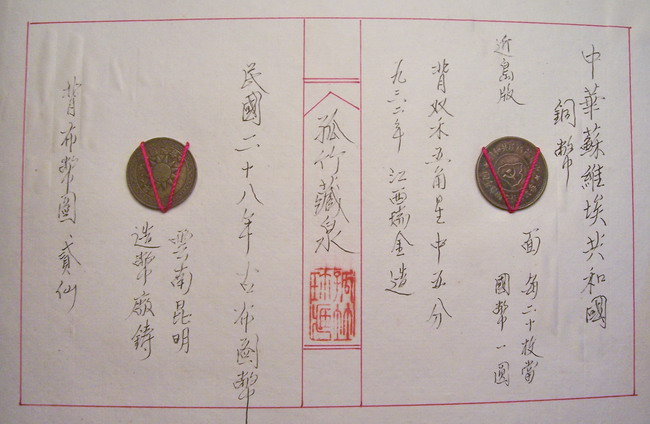 中華蘇維埃共和國
銅幣
近島版
面 每二十枚當
國幣一圓
背双禾五角星中五分
一九三二年 江西瑞金造
孤竹藏泉
民國二十八年古布圖幣
雲南昆明
造幣廠鑄
背布幣圖、貳仙